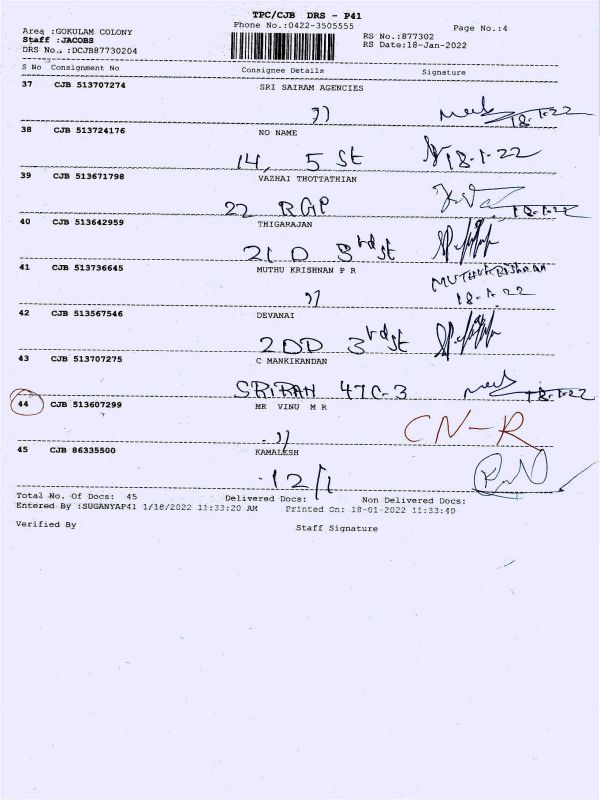 TPC/CJB DRS - P41
Phone No.:0422-3505555
Page No.:4
Area :GOKULAM COLONY
Staff :JACOBS
DRS No.: :DCJB87730204
RS No.:877302
RS Date:18-Jan-2022
S No Consignment No Consignee Details Signature
37 CJB 513707274 SRI SAIRAM AGENCIES
18-1-22
38 CJB 513724176 NO NAME
14, 5 St 18-1-22
39 CJB 513671798 VAZHAI THOTTATHIAN
22 RGP 18-1-22
40 CJB 513642959 THIGARAJAN
21 D 3rd st
41 CJB 513736645 MUTHU KRISHNAN P R
MUTHUKRISHNAN
18-1-22
42 CJB 513567546 DEVANAI
2DD 3rd st
43 CJB 513707275 C MANKIKANDAN
SRIRAM 47C-3 18-1-22
44 CJB 513607299 MR VINU M R
CN-R
45 CJB 86335500 KAMALESH
12/1
Total No. Of Docs: 45 Delivered Docs: Non Delivered Docs:
Entered By :SUGANYAP41 1/18/2022 11:33:20 AM Printed On: 18-01-2022 11:33:40
Verified By Staff Signature